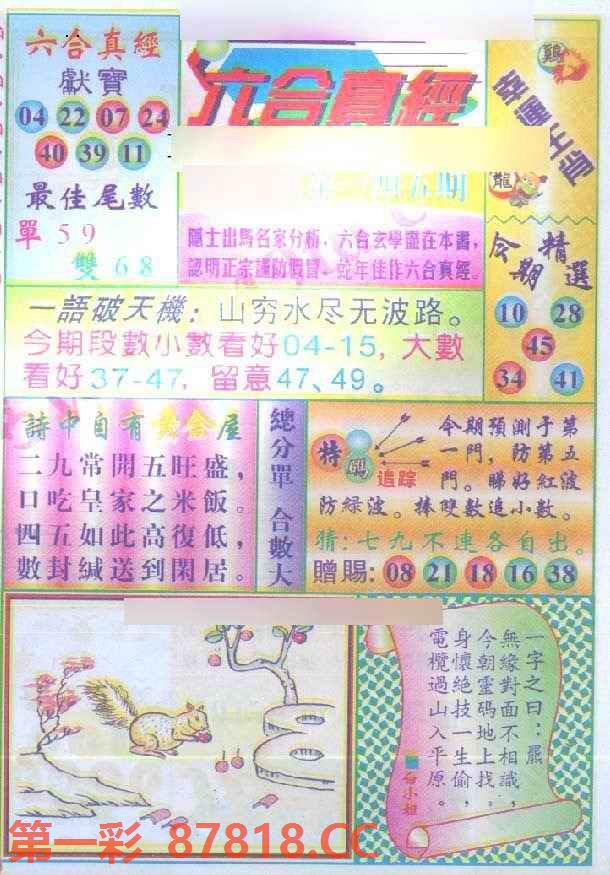 六合真經
獻寶
04 22 07 24
40 39 11
最佳尾數
單 59
雙 68
六合真經
四五期
隱士出馬名家分析，六合玄學盡在本書，
認明正宗謹防假冒，蛇年佳作六合真經。
鷄
龍
今期精選
10 28
45
34 41
一語破天機：山穷水尽无波路。
今期段數小數看好04-15，大數
看好37-47，留意47、49。
詩中自有黃金屋
二九常開五旺盛，
日吃皇家之米飯。
四五如此高復低，
數封緘送到閑居。
總分單 合數大
特碼
追踪
今期預測于第
一門，防第五
門。睇好紅波
防綠波。捧雙數追小數。
猜：七九不連各自出。
贈賜：08 21 18 16 38
一字之曰：羆
無緣對面不相識，
今朝靈碼地上找，
身懷絕技一生偷，
電欖過山入平原。
白小姐
第一彩 87818.CC